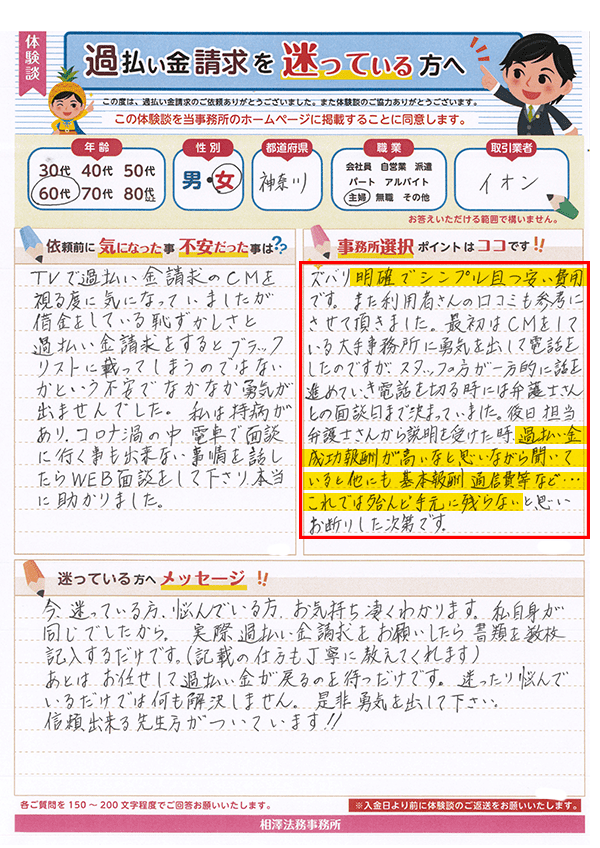 体験談
過払い金請求を迷っている方へ
この度は、過払い金請求のご依頼ありがとうございました。また体験談のご協力ありがとうございます。
この体験談を当事務所のホームページに掲載することに同意します。
年齢
30代 40代 50代
60代 70代 80代
性別
男・女
都道府県
神奈川
職業
会社員 自営業 派遣
パート アルバイト
主婦 無職 その他
取引業者
イオン
お答えいただける範囲で構いません。
依頼前に気になった事 不安だった事は??
TVで過払い金請求のCMを
視る度に気になっていましたが
借金をしている恥ずかしさと
過払い金請求をするとブラック
リストに載ってしまうのではない
かという不安でなかなか勇気が
出ませんでした。私は持病が
あり、コロナ渦の中、電車で面談
に行く事も出来ない事情を話し
たらWEB面談をして下さり本当
に助かりました。
事務所選択 ポイントは ココ です!!
ズバリ明確でシンプル且つ安い費用
です。また利用者さんの口コミも参考に
させて頂きました。最初はCMをして
いる大手事務所に勇気を出して電話を
したのですが、スタッフの方が一方的に話を
進めていき電話を切る時には弁護士さん
との面談日まで決まっていました。後日担当
弁護士さんから説明を受けた時、過払い金
成功報酬が高いなと思いながら聞いて
いると他にも基本報酬 通信費等など…
これでは殆んど手元に残らないと思い
お断りした次第です。
迷っている方へ メッセージ !!
今、迷っている方、悩んでいる方、お気持ち凄くわかります。私自身が
同じでしたから。 実際過払い金請求をお願いしたら書類を数枚
記入するだけです。(記載の仕方も丁寧に教えてくれます)
あとはお任せして過払い金が戻るのを待つだけです。迷ったり悩んで
いるだけでは何も解決しません。是非勇気を出して下さい。
信頼出来る先生方がついています!!
各ご質問を150〜200文字程度でご回答お願いいたします。
※入金日より前に体験談のご返送をお願いいたします。
相澤法務事務所